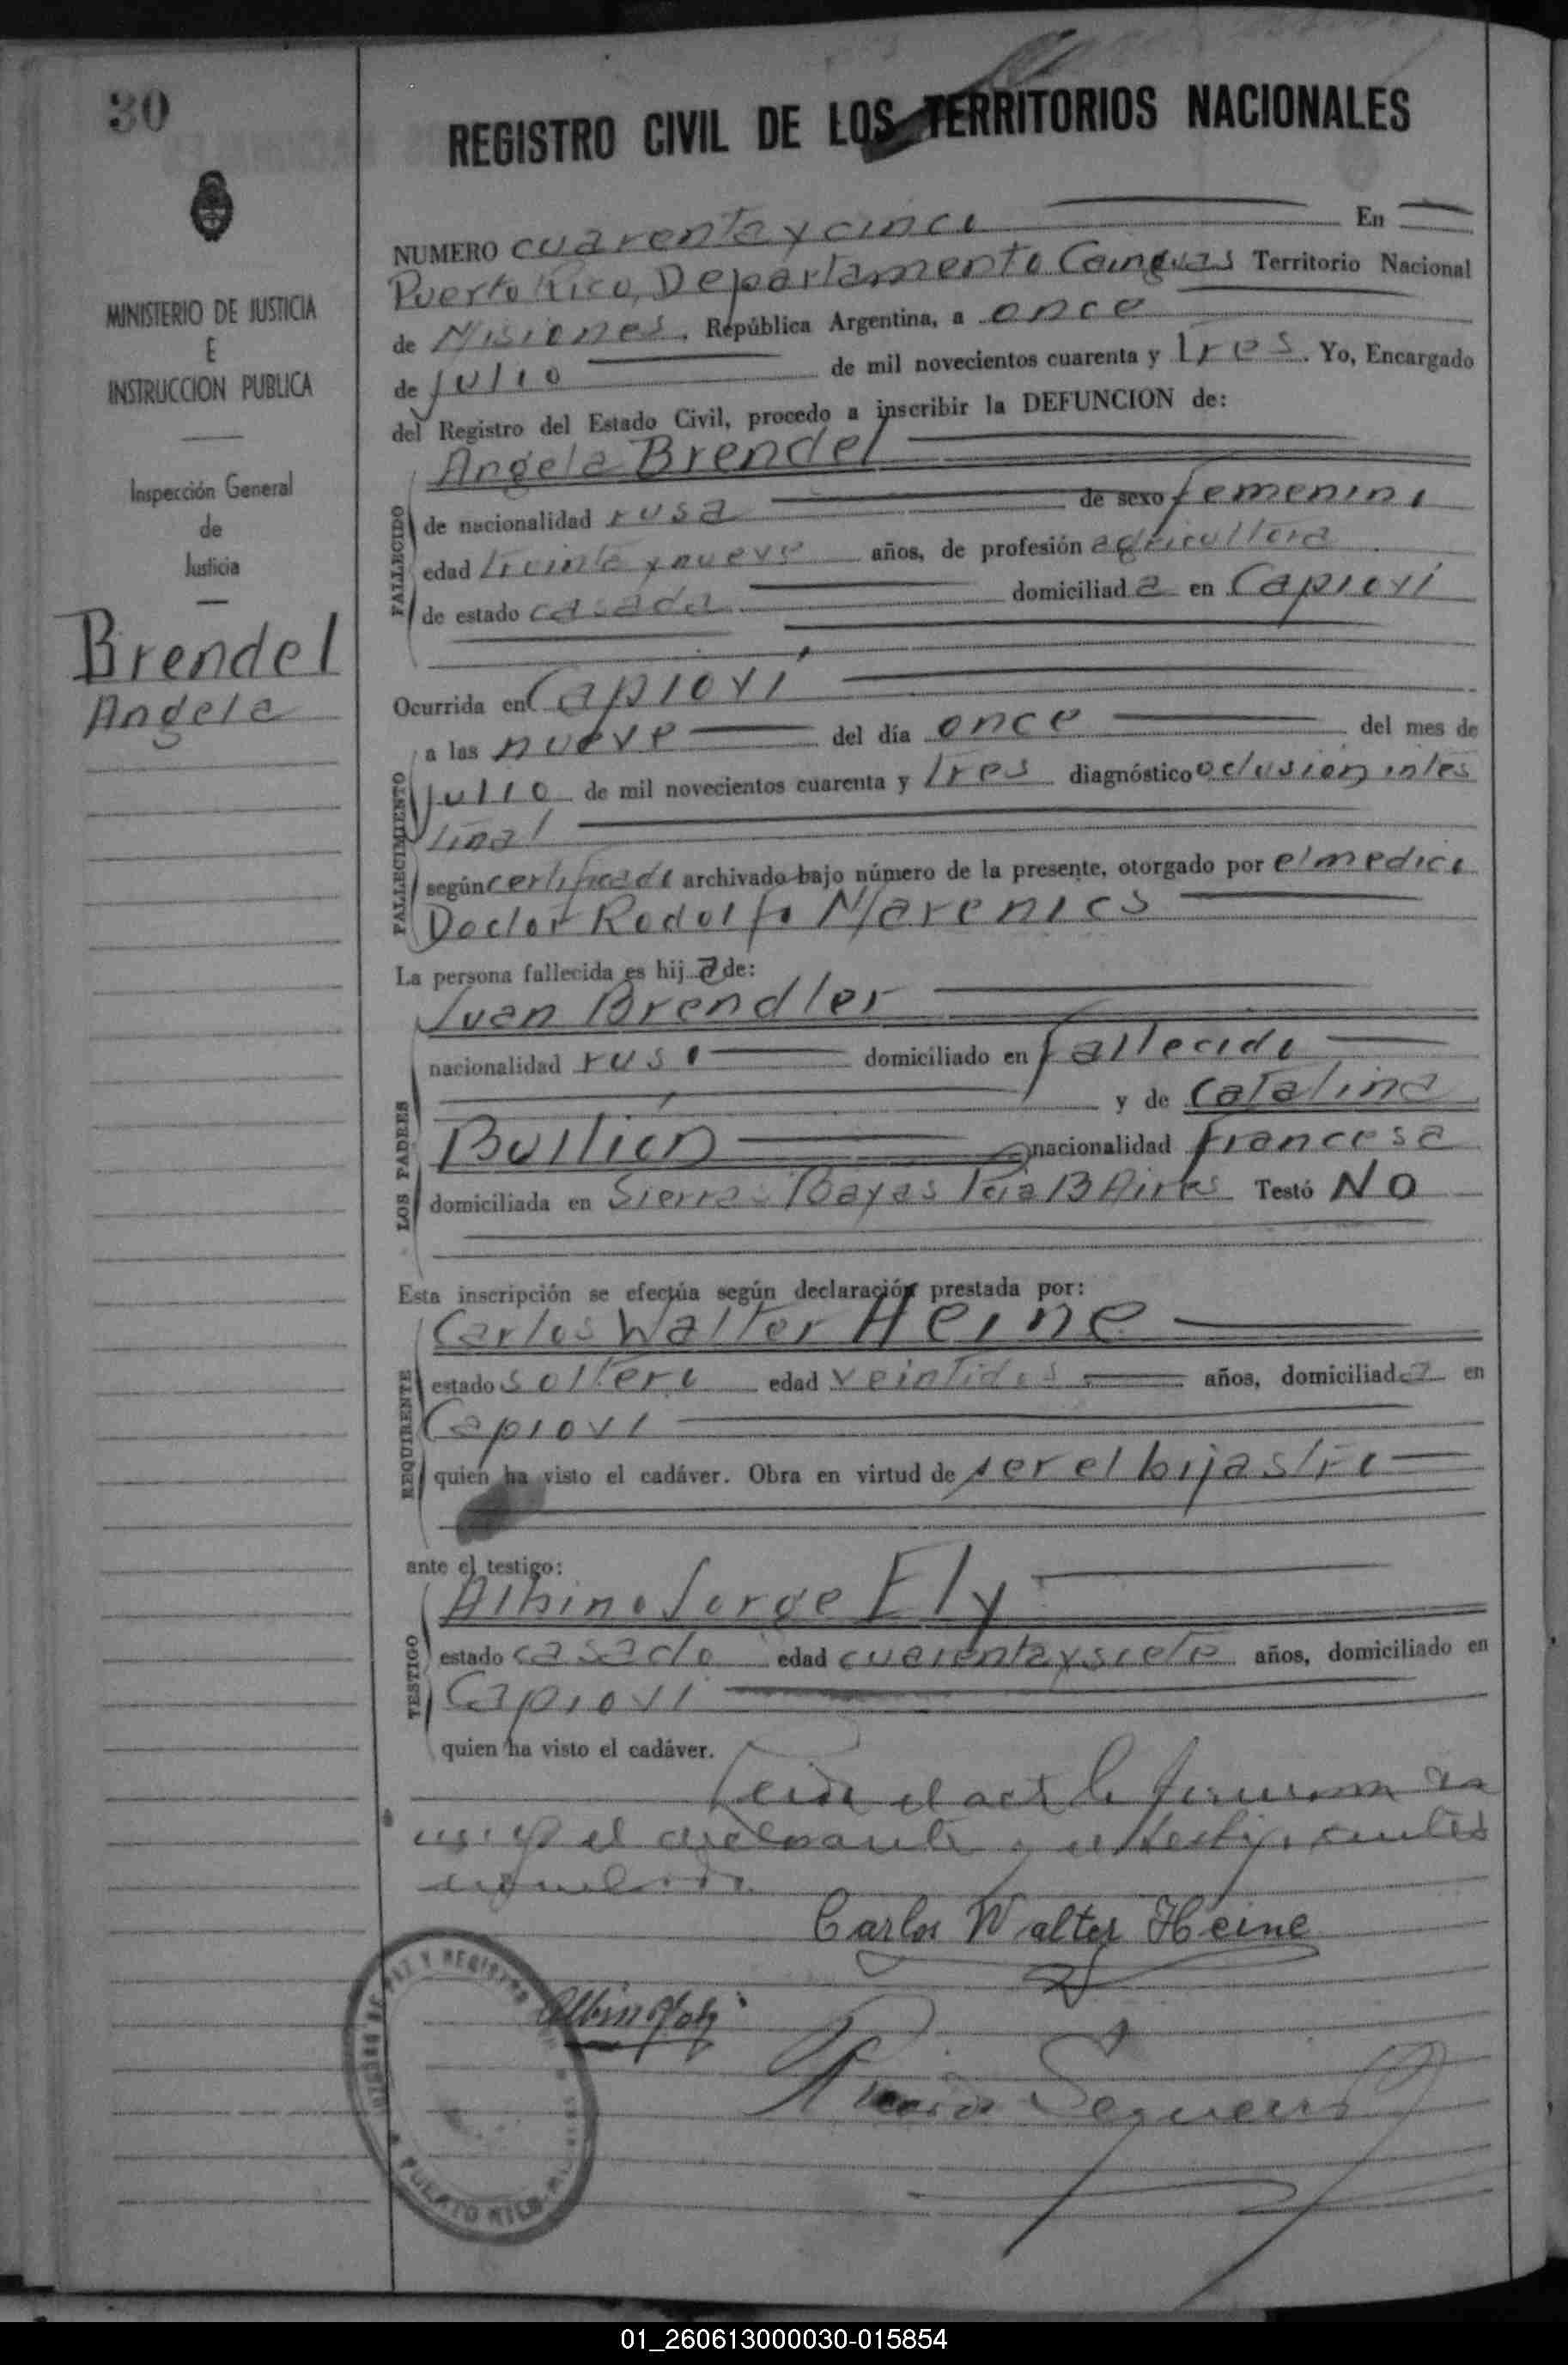 30
REGISTRO CIVIL DE LOS TERRITORIOS NACIONALES
MINISTERIO DE JUSTICIA
E
INSTRUCCION PUBLICA
Inspección General
de
Justicia
Brendel
Angela
NUMERO cuarenta y cinco En
Puerto Rico, Departamento Cainguas Territorio Nacional
de Misiones. República Argentina, a once
de julio de mil novecientos cuarenta y tres. Yo, Encargado
del Registro del Estado Civil, procedo a inscribir la DEFUNCION de:
Angela Brendel
FALLECIDO
de nacionalidad rusa de sexo femenino
edad treinta y nueve años, de profesión agricultora
de estado casada domiciliada en Capiovi
Ocurrida en Capiovi
a las nueve del día once del mes de
FALLECIMIENTO
julio de mil novecientos cuarenta y tres diagnóstico oclusión intes
tinal
según certificado archivado bajo número de la presente, otorgado por el medico
Doctor Rodolfo Marenics
La persona fallecida es hija de:
Juan Brendler
nacionalidad ruso domiciliado en fallecido
LOS PADRES
y de Catalina
nacionalidad francesa
domiciliada en Sierras Bayas Pcia B Aires Testó NO
Esta inscripción se efectúa según declaración prestada por:
Carlos Walter Heine
REQUIRENTE
estado soltero edad veintidos años, domiciliada en
Capiovi
quien ha visto el cadáver. Obra en virtud de ser el hijastro
ante el testigo:
Albino Jorge Ely
TESTIGO
estado casado edad cuarenta y siete años, domiciliado en
Capiovi
quien ha visto el cadáver.
Leida el acta la firmaron
el declarante y el testigo
Carlos Walter Heine
PAZ Y REGISTRO
PUERTO RICO
01_260613000030-015854